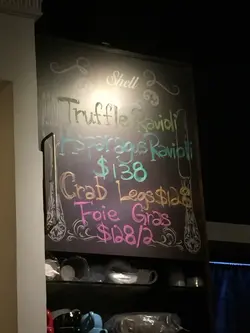 Shell
Truffle Ravioli
Asparagus Ravioli
$138
Crab Legs $128
Foie Gras
$128/2